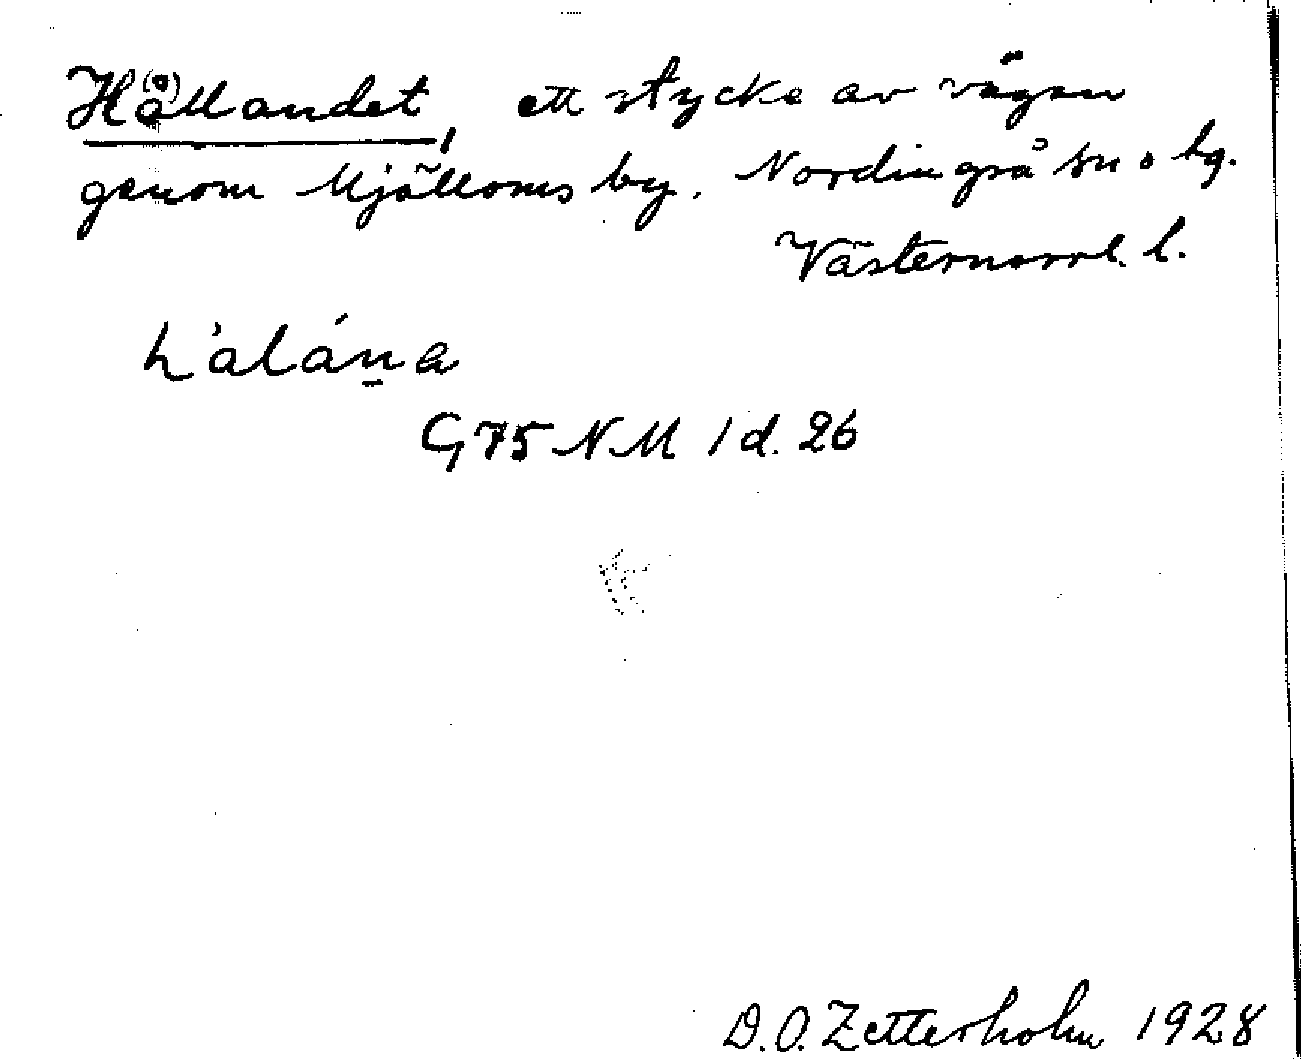 Hå(o)llandet, ett stycke av vägen
genom Mjälloms by. Nordingrå sn o tg.
Västernorrl. l.
G75 NM 1 d. 26
D.O. Zetterholm 1928